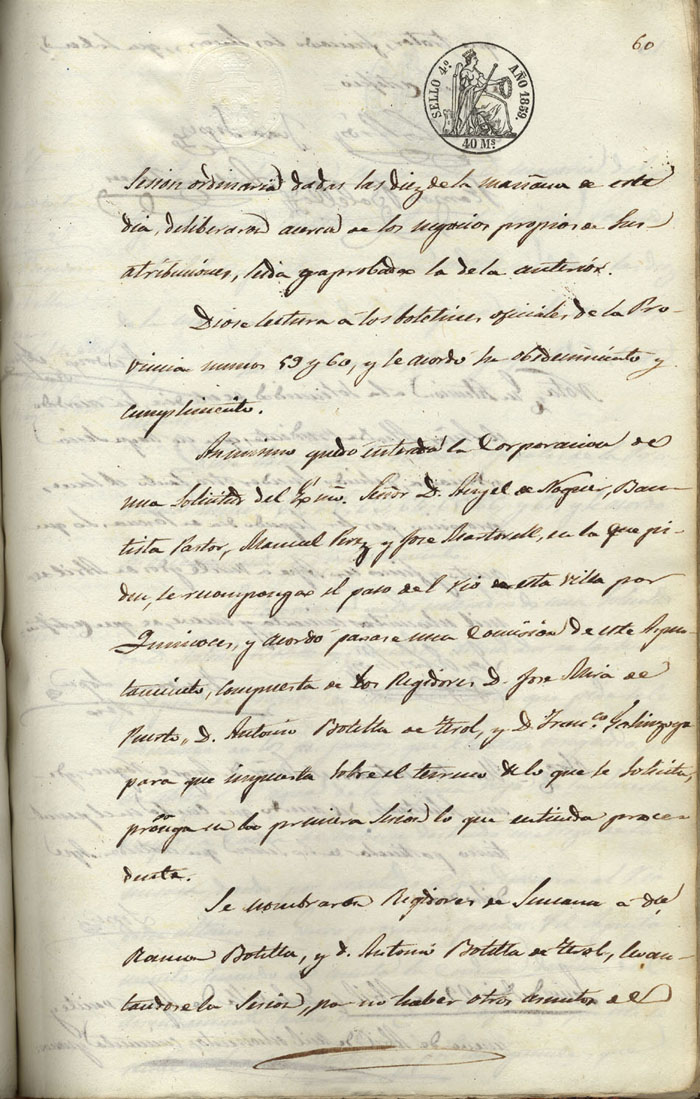 60
SELLO 4º AÑO 1859.
40 Ms
Sesion ordinaria dadas las diez de la mañana de este
dia, deliberaron acerca de los negocios propios de sus
atribuciones, leida y aprobada la de la anterior.
Diose lectura a los boletines oficiales de la Pro-
vincia numos 59 y 60, y se acordó su obedecimiento y
cumplimiento.
Asimismo quedó enterada la Corporacion de
una solicitud del Exmo. Señor D. Angel de Noguer, Bau-
tista Pastor, Manuel Perez y Jose Martorell, en la que pi-
den, se recomponga el paso del rio de esta villa por
y acordó pasase una Comision de este Ayun-
tamiento, compuesta de los Regidores D. Jose Mira de
Puerto, D. Antonio Botella de Tirol, y D. Franco. Galinzoga
para que impuesta sobre el terreno de lo que se solicita,
proponga en la primera sesion lo que entienda proce-
dente.
Se nombraron Regidores de Semana a dn.
Ramon Botella, y d. Antonio Botella de Tirol, levan-
tandose la Sesion, por no haber otros asuntos de el